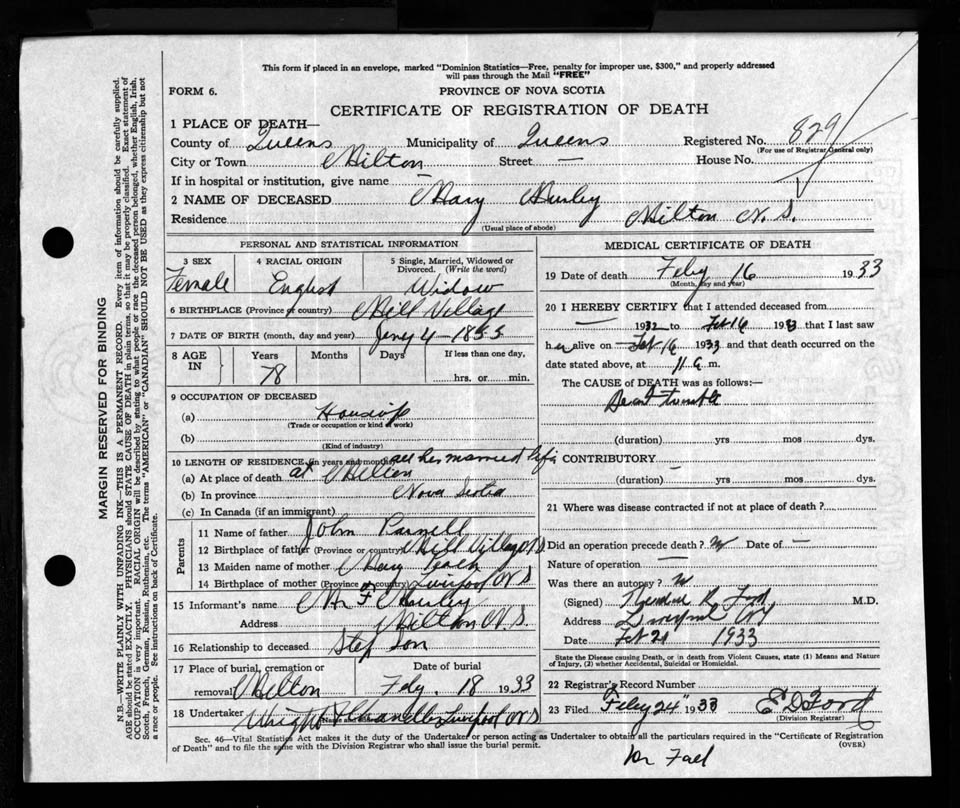 This form if placed in an envelope, marked "Dominion Statistics—Free, penalty for improper use, $300," and properly addressed
will pass through the Mail "FREE"
FORM 6.
PROVINCE OF NOVA SCOTIA
CERTIFICATE OF REGISTRATION OF DEATH
1 PLACE OF DEATH—
County of Queens Municipality of Queens Registered No. 829
(For use of Registrar General only)
City or Town Milton Street — House No.
If in hospital or institution, give name —
2 NAME OF DECEASED Mary
Residence Milton N. S.
(Usual place of abode)
PERSONAL AND STATISTICAL INFORMATION
3 SEX
Female
4 RACIAL ORIGIN
English
5 Single, Married, Widowed or
Divorced. (Write the word)
Widow
6 BIRTHPLACE (Province or country) Mill Village
7 DATE OF BIRTH (month, day and year) 4 - 1855
8 AGE
IN
Years
78
Months
Days
If less than one day,
hrs. or min.
9 OCCUPATION OF DECEASED
(a)
(Trade or occupation or kind of work)
(b)
(Kind of industry)
10 LENGTH OF RESIDENCE (in years and months) all her married life
(a) At place of death at Milton
(b) In province Nova Scotia
(c) In Canada (if an immigrant)
Parents
11 Name of father John Parnell
12 Birthplace of father (Province or country) Mill Village N S
13 Maiden name of mother Mary
14 Birthplace of mother (Province or country) Liverpool N S
15 Informant's name
Address Milton N. S.
16 Relationship to deceased Step Son
17 Place of burial, cremation or
removal Milton
Date of burial
Feby. 18 1933
18 Undertaker Liverpool N S
MEDICAL CERTIFICATE OF DEATH
19 Date of death Feby 16 1933
(Month, day and year)
20 I HEREBY CERTIFY that I attended deceased from
— 1932 to Feb 16 1933 that I last saw
her alive on Feb 16 1933 and that death occurred on the
date stated above, at 11 m.
The CAUSE of DEATH was as follows:—
Heart trouble
(duration) yrs mos dys.
CONTRIBUTORY —
(duration) yrs mos dys.
21 Where was disease contracted if not at place of death?
Did an operation precede death? Date of —
Nature of operation —
Was there an autopsy?
(Signed) M.D.
Address Liverpool
Date Feb 21 1933
State the Disease causing Death, or in death from Violent Causes, state (1) Means and Nature
of Injury, (2) whether Accidental, Suicidal or Homicidal.
22 Registrar's Record Number
23 Filed Feby 24" 1933 E D Ford
(Division Registrar)
Sec. 46—Vital Statistics Act makes it the duty of the Undertaker or person acting as Undertaker to obtain all the particulars required in the "Certificate of Registration
of Death" and to file the same with the Division Registrar who shall issue the burial permit. (OVER)
MARGIN RESERVED FOR BINDING
N.B.—WRITE PLAINLY WITH UNFADING INK—THIS IS A PERMANENT RECORD. Every item of information should be carefully supplied.
AGE should be stated EXACTLY. PHYSICIANS should STATE CAUSE OF DEATH in plain terms, so that it may be properly classified. Exact statement of
OCCUPATION is very important. RACIAL ORIGIN will be described by stating to what people or race the deceased person belonged, whether English, Irish,
Scotch, French, German, Russian, Ruthenian, etc. The terms "AMERICAN" or "CANADIAN" SHOULD NOT BE USED as they express citizenship but not
a race or people. See instructions on back of Certificate.